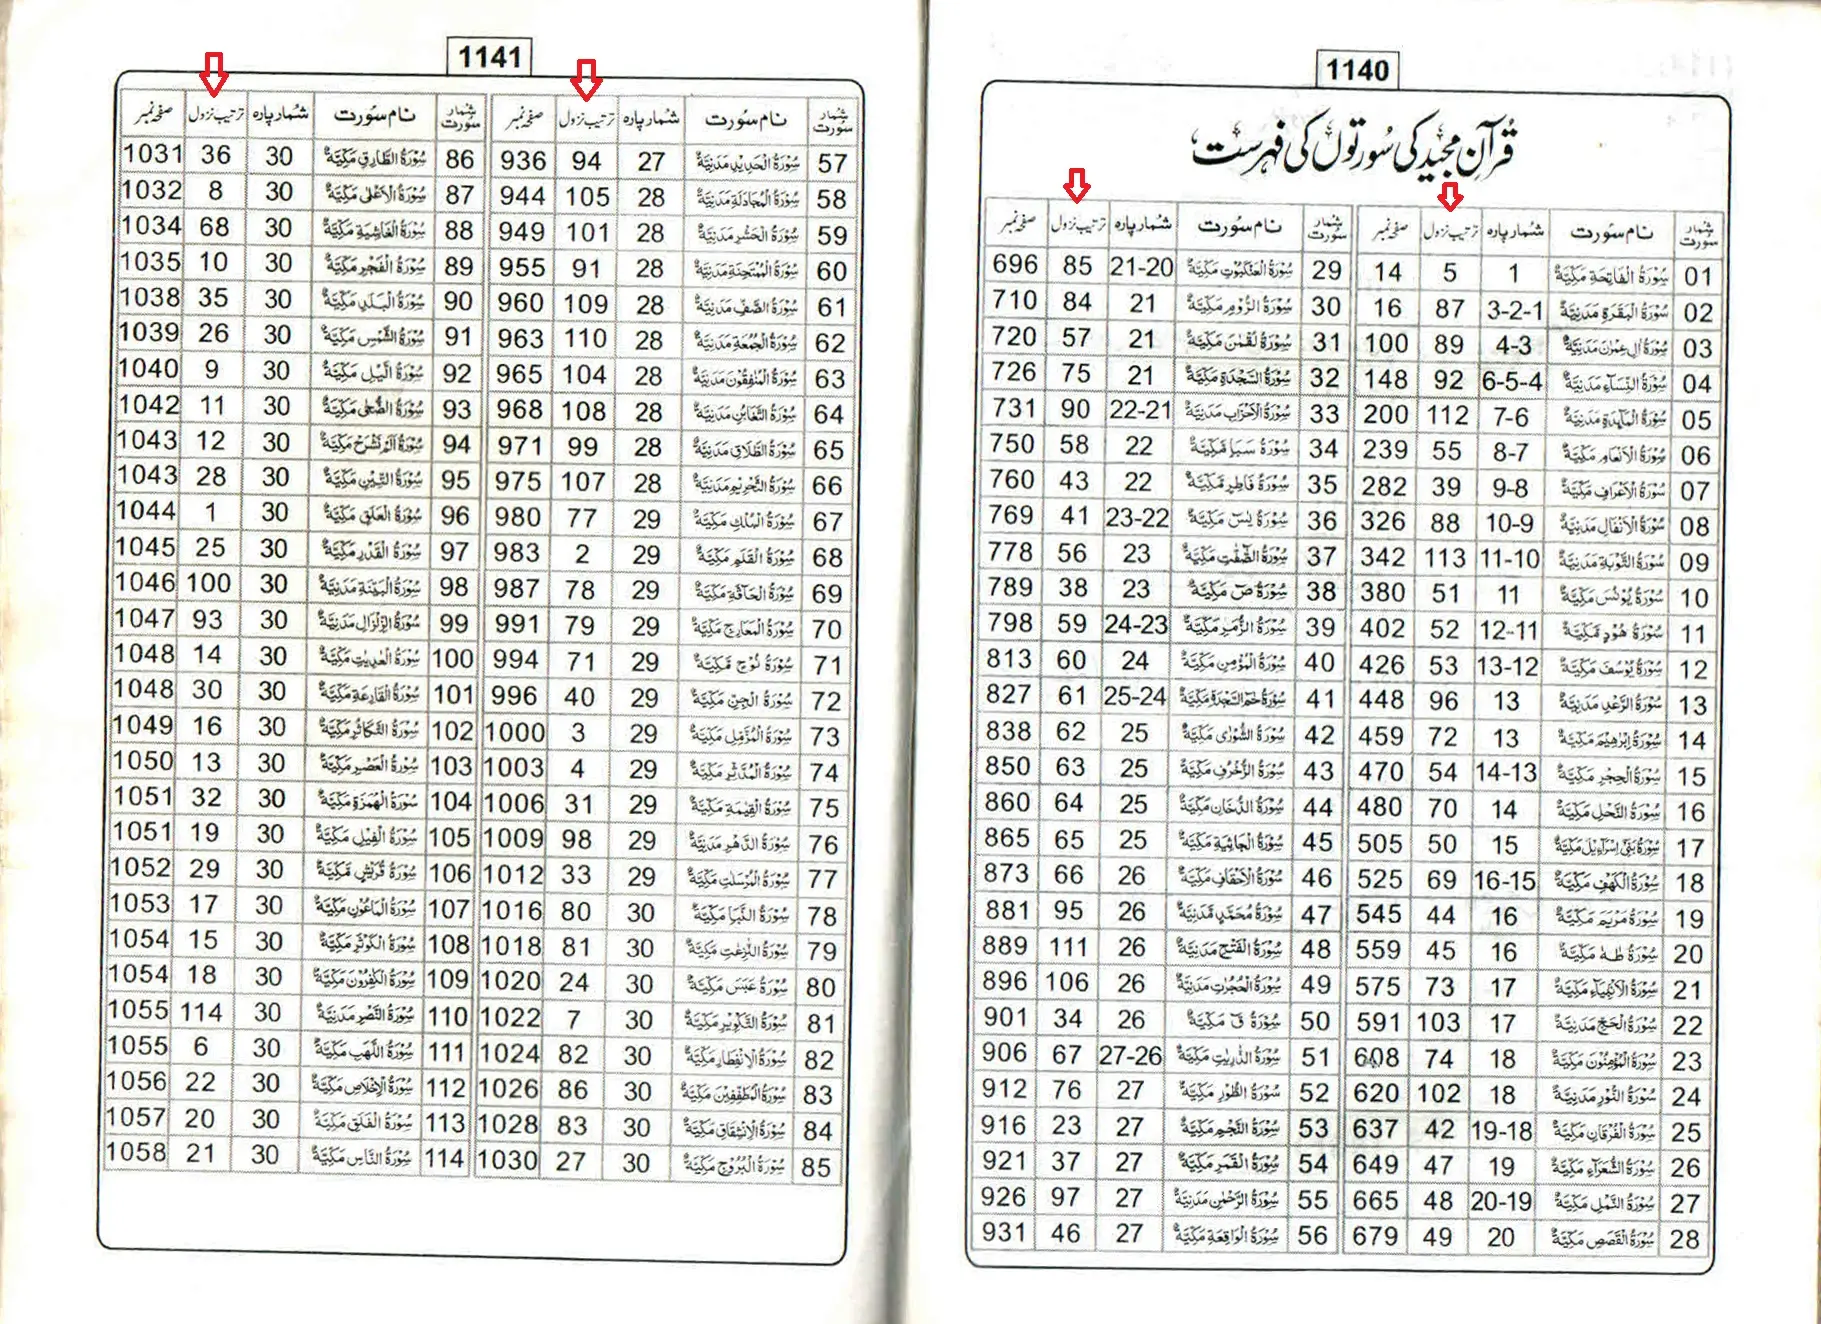 1140
قُرآن مجید کی سُورتوں کی فہرست
شمار سُورت نام سُورت شمار پارہ ترتیب نزول صفحہ نمبر
01 سُوْرَةُ الْفَاتِحَةِ مَكِّيَّةٌ 1 5 14
02 سُوْرَةُ الْبَقَرَةِ مَدَنِيَّةٌ 3-2-1 87 16
03 سُوْرَةُ اٰلِ عِمْرٰنَ مَدَنِيَّةٌ 4-3 89 100
04 سُوْرَةُ النِّسَآءِ مَدَنِيَّةٌ 6-5-4 92 148
05 سُوْرَةُ الْمَآئِدَةِ مَدَنِيَّةٌ 7-6 112 200
06 سُوْرَةُ الْاَنْعَامِ مَكِّيَّةٌ 8-7 55 239
07 سُوْرَةُ الْاَعْرَافِ مَكِّيَّةٌ 9-8 39 282
08 سُوْرَةُ الْاَنْفَالِ مَدَنِيَّةٌ 10-9 88 326
09 سُوْرَةُ التَّوْبَةِ مَدَنِيَّةٌ 11-10 113 342
10 سُوْرَةُ يُوْنُسَ مَكِّيَّةٌ 11 51 380
11 سُوْرَةُ هُوْدٍ مَّكِّيَّةٌ 12-11 52 402
12 سُوْرَةُ يُوْسُفَ مَكِّيَّةٌ 13-12 53 426
13 سُوْرَةُ الرَّعْدِ مَدَنِيَّةٌ 13 96 448
14 سُوْرَةُ اِبْرٰهِيْمَ مَكِّيَّةٌ 13 72 459
15 سُوْرَةُ الْحِجْرِ مَكِّيَّةٌ 14-13 54 470
16 سُوْرَةُ النَّحْلِ مَكِّيَّةٌ 14 70 480
17 سُوْرَةُ بَنِيْٓ اِسْرَآءِيْلَ مَكِّيَّةٌ 15 50 505
18 سُوْرَةُ الْكَهْفِ مَكِّيَّةٌ 16-15 69 525
19 سُوْرَةُ مَرْيَمَ مَكِّيَّةٌ 16 44 545
20 سُوْرَةُ طٰهٰ مَكِّيَّةٌ 16 45 559
21 سُوْرَةُ الْاَنْبِيَآءِ مَكِّيَّةٌ 17 73 575
22 سُوْرَةُ الْحَجِّ مَدَنِيَّةٌ 17 103 591
23 سُوْرَةُ الْمُؤْمِنُوْنَ مَكِّيَّةٌ 18 74 608
24 سُوْرَةُ النُّوْرِ مَدَنِيَّةٌ 18 102 620
25 سُوْرَةُ الْفُرْقَانِ مَكِّيَّةٌ 19-18 42 637
26 سُوْرَةُ الشُّعَرَآءِ مَكِّيَّةٌ 19 47 649
27 سُوْرَةُ النَّمْلِ مَكِّيَّةٌ 20-19 48 665
28 سُوْرَةُ الْقَصَصِ مَكِّيَّةٌ 20 49 679
شمار سُورت نام سُورت شمار پارہ ترتیب نزول صفحہ نمبر
29 سُوْرَةُ الْعَنْكَبُوْتِ مَكِّيَّةٌ 21-20 85 696
30 سُوْرَةُ الرُّوْمِ مَكِّيَّةٌ 21 84 710
31 سُوْرَةُ لُقْمٰنَ مَكِّيَّةٌ 21 57 720
32 سُوْرَةُ السَّجْدَةِ مَكِّيَّةٌ 21 75 726
33 سُوْرَةُ الْاَحْزَابِ مَدَنِيَّةٌ 22-21 90 731
34 سُوْرَةُ سَبَاٍ مَّكِّيَّةٌ 22 58 750
35 سُوْرَةُ فَاطِرٍ مَّكِّيَّةٌ 22 43 760
36 سُوْرَةُ يٰسٓ مَكِّيَّةٌ 23-22 41 769
37 سُوْرَةُ الصّٰفّٰتِ مَكِّيَّةٌ 23 56 778
38 سُوْرَةُ صٓ مَكِّيَّةٌ 23 38 789
39 سُوْرَةُ الزُّمَرِ مَكِّيَّةٌ 24-23 59 798
40 سُوْرَةُ الْمُؤْمِنِ مَكِّيَّةٌ 24 60 813
41 سُوْرَةُ حٰمٓ السَّجْدَةِ مَكِّيَّةٌ 25-24 61 827
42 سُوْرَةُ الشُّوْرٰى مَكِّيَّةٌ 25 62 838
43 سُوْرَةُ الزُّخْرُفِ مَكِّيَّةٌ 25 63 850
44 سُوْرَةُ الدُّخَانِ مَكِّيَّةٌ 25 64 860
45 سُوْرَةُ الْجَاثِيَةِ مَكِّيَّةٌ 25 65 865
46 سُوْرَةُ الْاَحْقَافِ مَكِّيَّةٌ 26 66 873
47 سُوْرَةُ مُحَمَّدٍ مَّدَنِيَّةٌ 26 95 881
48 سُوْرَةُ الْفَتْحِ مَدَنِيَّةٌ 26 111 889
49 سُوْرَةُ الْحُجُرٰتِ مَدَنِيَّةٌ 26 106 896
50 سُوْرَةُ قٓ مَكِّيَّةٌ 26 34 901
51 سُوْرَةُ الذّٰرِيٰتِ مَكِّيَّةٌ 27-26 67 906
52 سُوْرَةُ الطُّوْرِ مَكِّيَّةٌ 27 76 912
53 سُوْرَةُ النَّجْمِ مَكِّيَّةٌ 27 23 916
54 سُوْرَةُ الْقَمَرِ مَكِّيَّةٌ 27 37 921
55 سُوْرَةُ الرَّحْمٰنِ مَدَنِيَّةٌ 27 97 926
56 سُوْرَةُ الْوَاقِعَةِ مَكِّيَّةٌ 27 46 931
1141
شمار سُورت نام سُورت شمار پارہ ترتیب نزول صفحہ نمبر
57 سُوْرَةُ الْحَدِيْدِ مَدَنِيَّةٌ 27 94 936
58 سُوْرَةُ الْمُجَادَلَةِ مَدَنِيَّةٌ 28 105 944
59 سُوْرَةُ الْحَشْرِ مَدَنِيَّةٌ 28 101 949
60 سُوْرَةُ الْمُمْتَحِنَةِ مَدَنِيَّةٌ 28 91 955
61 سُوْرَةُ الصَّفِّ مَدَنِيَّةٌ 28 109 960
62 سُوْرَةُ الْجُمُعَةِ مَدَنِيَّةٌ 28 110 963
63 سُوْرَةُ الْمُنٰفِقُوْنَ مَدَنِيَّةٌ 28 104 965
64 سُوْرَةُ التَّغَابُنِ مَدَنِيَّةٌ 28 108 968
65 سُوْرَةُ الطَّلَاقِ مَدَنِيَّةٌ 28 99 971
66 سُوْرَةُ التَّحْرِيْمِ مَدَنِيَّةٌ 28 107 975
67 سُوْرَةُ الْمُلْكِ مَكِّيَّةٌ 29 77 980
68 سُوْرَةُ الْقَلَمِ مَكِّيَّةٌ 29 2 983
69 سُوْرَةُ الْحَآقَّةِ مَكِّيَّةٌ 29 78 987
70 سُوْرَةُ الْمَعَارِجِ مَكِّيَّةٌ 29 79 991
71 سُوْرَةُ نُوْحٍ مَّكِّيَّةٌ 29 71 994
72 سُوْرَةُ الْجِنِّ مَكِّيَّةٌ 29 40 996
73 سُوْرَةُ الْمُزَّمِّلِ مَكِّيَّةٌ 29 3 1000
74 سُوْرَةُ الْمُدَّثِّرِ مَكِّيَّةٌ 29 4 1003
75 سُوْرَةُ الْقِيٰمَةِ مَكِّيَّةٌ 29 31 1006
76 سُوْرَةُ الدَّهْرِ مَدَنِيَّةٌ 29 98 1009
77 سُوْرَةُ الْمُرْسَلٰتِ مَكِّيَّةٌ 29 33 1012
78 سُوْرَةُ النَّبَاِ مَكِّيَّةٌ 30 80 1016
79 سُوْرَةُ النّٰزِعٰتِ مَكِّيَّةٌ 30 81 1018
80 سُوْرَةُ عَبَسَ مَكِّيَّةٌ 30 24 1020
81 سُوْرَةُ التَّكْوِيْرِ مَكِّيَّةٌ 30 7 1022
82 سُوْرَةُ الْاِنْفِطَارِ مَكِّيَّةٌ 30 82 1024
83 سُوْرَةُ الْمُطَفِّفِيْنَ مَكِّيَّةٌ 30 86 1026
84 سُوْرَةُ الْاِنْشِقَاقِ مَكِّيَّةٌ 30 83 1028
85 سُوْرَةُ الْبُرُوْجِ مَكِّيَّةٌ 30 27 1030
شمار سُورت نام سُورت شمار پارہ ترتیب نزول صفحہ نمبر
86 سُوْرَةُ الطَّارِقِ مَكِّيَّةٌ 30 36 1031
87 سُوْرَةُ الْاَعْلٰى مَكِّيَّةٌ 30 8 1032
88 سُوْرَةُ الْغَاشِيَةِ مَكِّيَّةٌ 30 68 1034
89 سُوْرَةُ الْفَجْرِ مَكِّيَّةٌ 30 10 1035
90 سُوْرَةُ الْبَلَدِ مَكِّيَّةٌ 30 35 1038
91 سُوْرَةُ الشَّمْسِ مَكِّيَّةٌ 30 26 1039
92 سُوْرَةُ الَّيْلِ مَكِّيَّةٌ 30 9 1040
93 سُوْرَةُ الضُّحٰى مَكِّيَّةٌ 30 11 1042
94 سُوْرَةُ اَلَمْ نَشْرَحْ مَكِّيَّةٌ 30 12 1043
95 سُوْرَةُ التِّيْنِ مَكِّيَّةٌ 30 28 1043
96 سُوْرَةُ الْعَلَقِ مَكِّيَّةٌ 30 1 1044
97 سُوْرَةُ الْقَدْرِ مَكِّيَّةٌ 30 25 1045
98 سُوْرَةُ الْبَيِّنَةِ مَدَنِيَّةٌ 30 100 1046
99 سُوْرَةُ الزِّلْزَالِ مَدَنِيَّةٌ 30 93 1047
100 سُوْرَةُ الْعٰدِيٰتِ مَكِّيَّةٌ 30 14 1048
101 سُوْرَةُ الْقَارِعَةِ مَكِّيَّةٌ 30 30 1048
102 سُوْرَةُ التَّكَاثُرِ مَكِّيَّةٌ 30 16 1049
103 سُوْرَةُ الْعَصْرِ مَكِّيَّةٌ 30 13 1050
104 سُوْرَةُ الْهُمَزَةِ مَكِّيَّةٌ 30 32 1051
105 سُوْرَةُ الْفِيْلِ مَكِّيَّةٌ 30 19 1051
106 سُوْرَةُ قُرَيْشٍ مَّكِّيَّةٌ 30 29 1052
107 سُوْرَةُ الْمَاعُوْنِ مَكِّيَّةٌ 30 17 1053
108 سُوْرَةُ الْكَوْثَرِ مَكِّيَّةٌ 30 15 1054
109 سُوْرَةُ الْكٰفِرُوْنَ مَكِّيَّةٌ 30 18 1054
110 سُوْرَةُ النَّصْرِ مَدَنِيَّةٌ 30 114 1055
111 سُوْرَةُ اللَّهَبِ مَكِّيَّةٌ 30 6 1055
112 سُوْرَةُ الْاِخْلَاصِ مَكِّيَّةٌ 30 22 1056
113 سُوْرَةُ الْفَلَقِ مَكِّيَّةٌ 30 20 1057
114 سُوْرَةُ النَّاسِ مَكِّيَّةٌ 30 21 1058